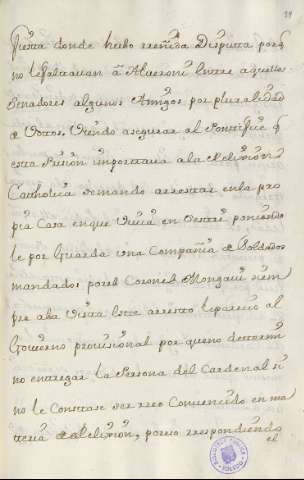 39
Junta donde hubo reñida Disputa porq̃
no le faltauan â Alueroni entre aquellos
Senadores algunos Amigos por pluralidad
de Votos. Viendo asegurar al Pontifice q̃
esta Prision importaua a la Relixion
Catholica mando arrestar en la pro
pia Casa en que Viuia en Sestri poniendo
le por Guarda una Compañia de Soldados
mandados por el Coronel
pre a la Vista este arresto le parecio al
Gouierno prouisional por que no determi
no entregar la Persona del Cardenal si
no le Constase ser reo Conuencido en ma
teria de Relixion, pero respondiendo
el
BIBLIOTECA PUBLICA TOLEDO